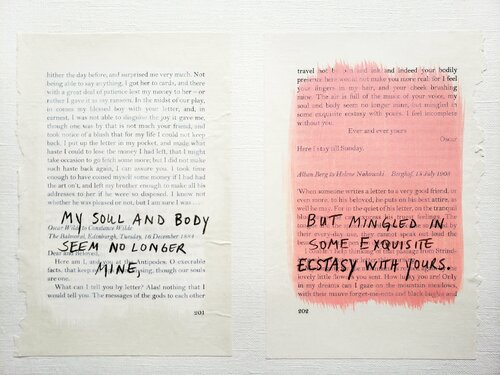 hither the day before, and surprised me very much. Not
being able to say anything, I got her to cards, and there
with a great deal of patience lost my money to her – or
rather I gave it as my ransom. In the midst of our play,
in comes my blessed boy with your letter, and, in
earnest, I was not able to disguise the joy it gave me,
though one was by that is not much your friend, and
took notice of a blush that for my life I could not keep
back. I put up the letter in my pocket, and made what
haste I could to lose the money I had left, that I might
take occasion to go fetch some more; but I did not make
such haste back again, I can assure you. I took time
enough to have coined myself some money if I had had
the art on't, and left my brother enough to make all his
addresses to her if he were so disposed. I know not
whether he was pleased or not, but I am sure I was
MY SOUL AND BODY
Oscar Wilde to Constance Wilde
The Balmoral, Edinburgh, Tuesday, 16 December 1884
SEEM NO LONGER
Dear and Beloved,
Here am I, and you at the Antipodes. O execrable
MINE,
facts, that keep our though our souls
are one.
What can I tell you by letter? Alas! nothing that I
would tell you. The messages of the gods to each other
201
travel not by pen and ink and indeed your bodily
presence here would not make you more real: for I feel
your fingers in my hair, and your cheek brushing
mine. The air is full of the music of your voice, my
soul and body seem no longer mine, but mingled in
some exquisite ecstasy with yours. I feel incomplete
without you.
Ever and ever yours
Oscar
Here I stay till Sunday.
Alban Berg to Helene Nahowski Berghof, 18 July 1908
When someone writes a letter to a very good friend, or
even more, to his beloved, he puts on his best attire, as
well he may. For in the quiet of his letter, on the tranquil
BUT MINGLED IN
SOME EXQUISITE
ECSTASY WITH YOURS.
little lovely flowers you sent. How lucky you are! Only
in my dreams can I gaze on the mountain meadows,
with their mauve forget-me-nots and black
202